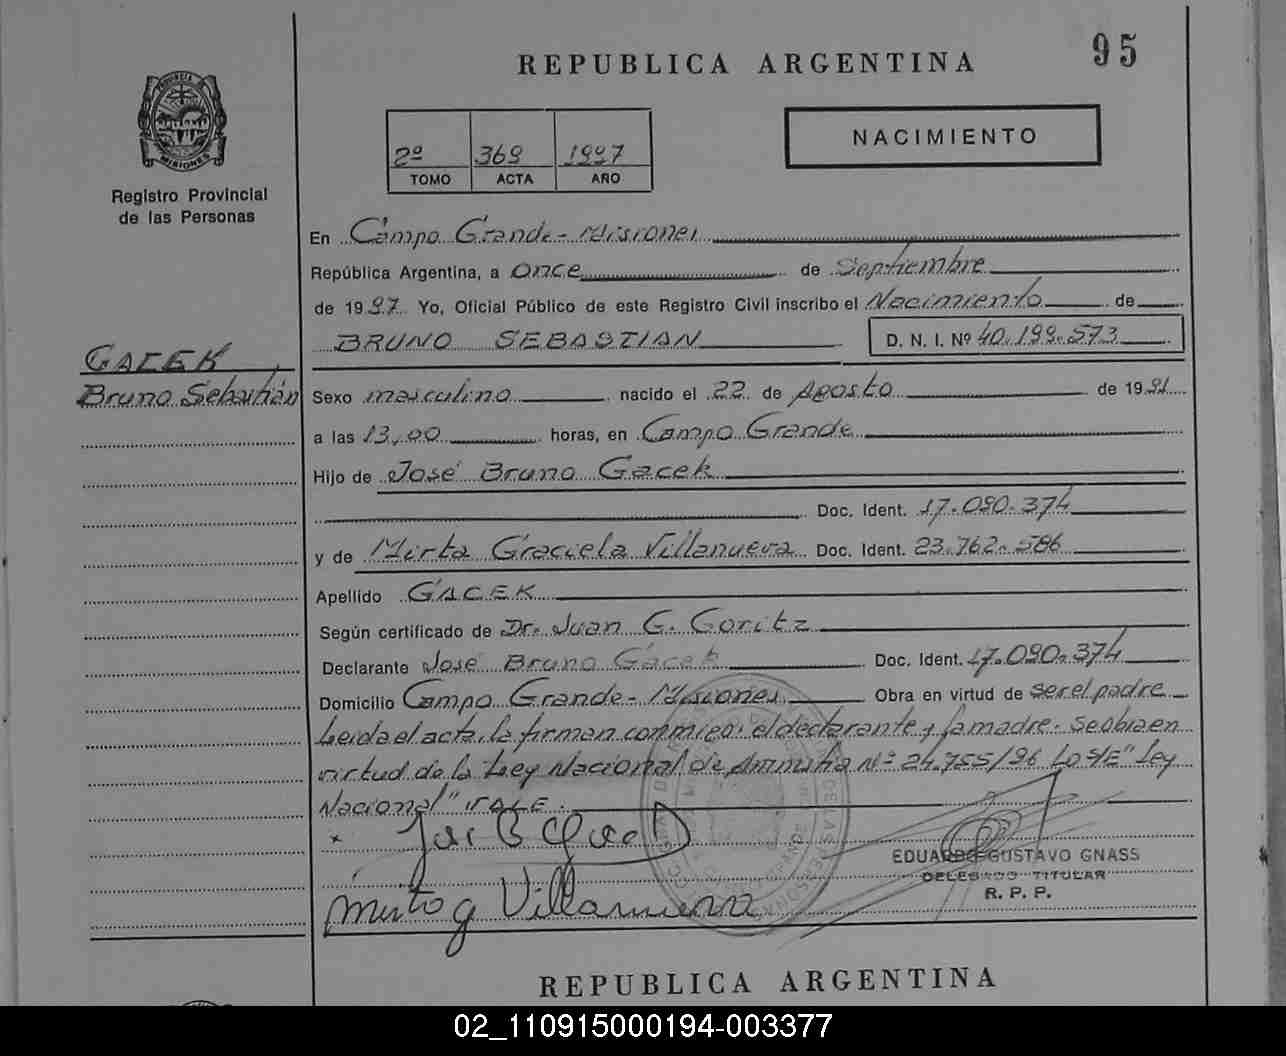 95
REPUBLICA ARGENTINA
PROVINCIA DE
MISIONES
Registro Provincial
de las Personas
2º 369 1997
TOMO ACTA AÑO
NACIMIENTO
En Campo Grande - Misiones
República Argentina, a once de Septiembre
de 1997 Yo, Oficial Público de este Registro Civil inscribo el Nacimiento de
BRUNO SEBASTIAN D. N. I. Nº 40.199.573
GACEK
Bruno Sebastián
Sexo masculino nacido el 22 de Agosto de 1991
a las 13,00 horas, en Campo Grande
Hijo de José Bruno Gacek
Doc. Ident. 17.090.374
y de Mirta Graciela Villanueva Doc. Ident. 23.762.586
Apellido GACEK
Según certificado de Dr. Juan G. Goritz
Declarante José Bruno Gacek Doc. Ident. 17.090.374
Domicilio Campo Grande - Misiones Obra en virtud de ser el padre
Leida el acta, la firman conmigo: el declarante y la madre. Se obra en
virtud de la Ley Nacional de Amnistia Nº 24.755/96 "Ley
Nacional" VALE.
Mirta G Villanueva
EDUARDO GUSTAVO GNASS
DELEGADO TITULAR
R. P. P.
REPUBLICA ARGENTINA
02_110915000194-003377